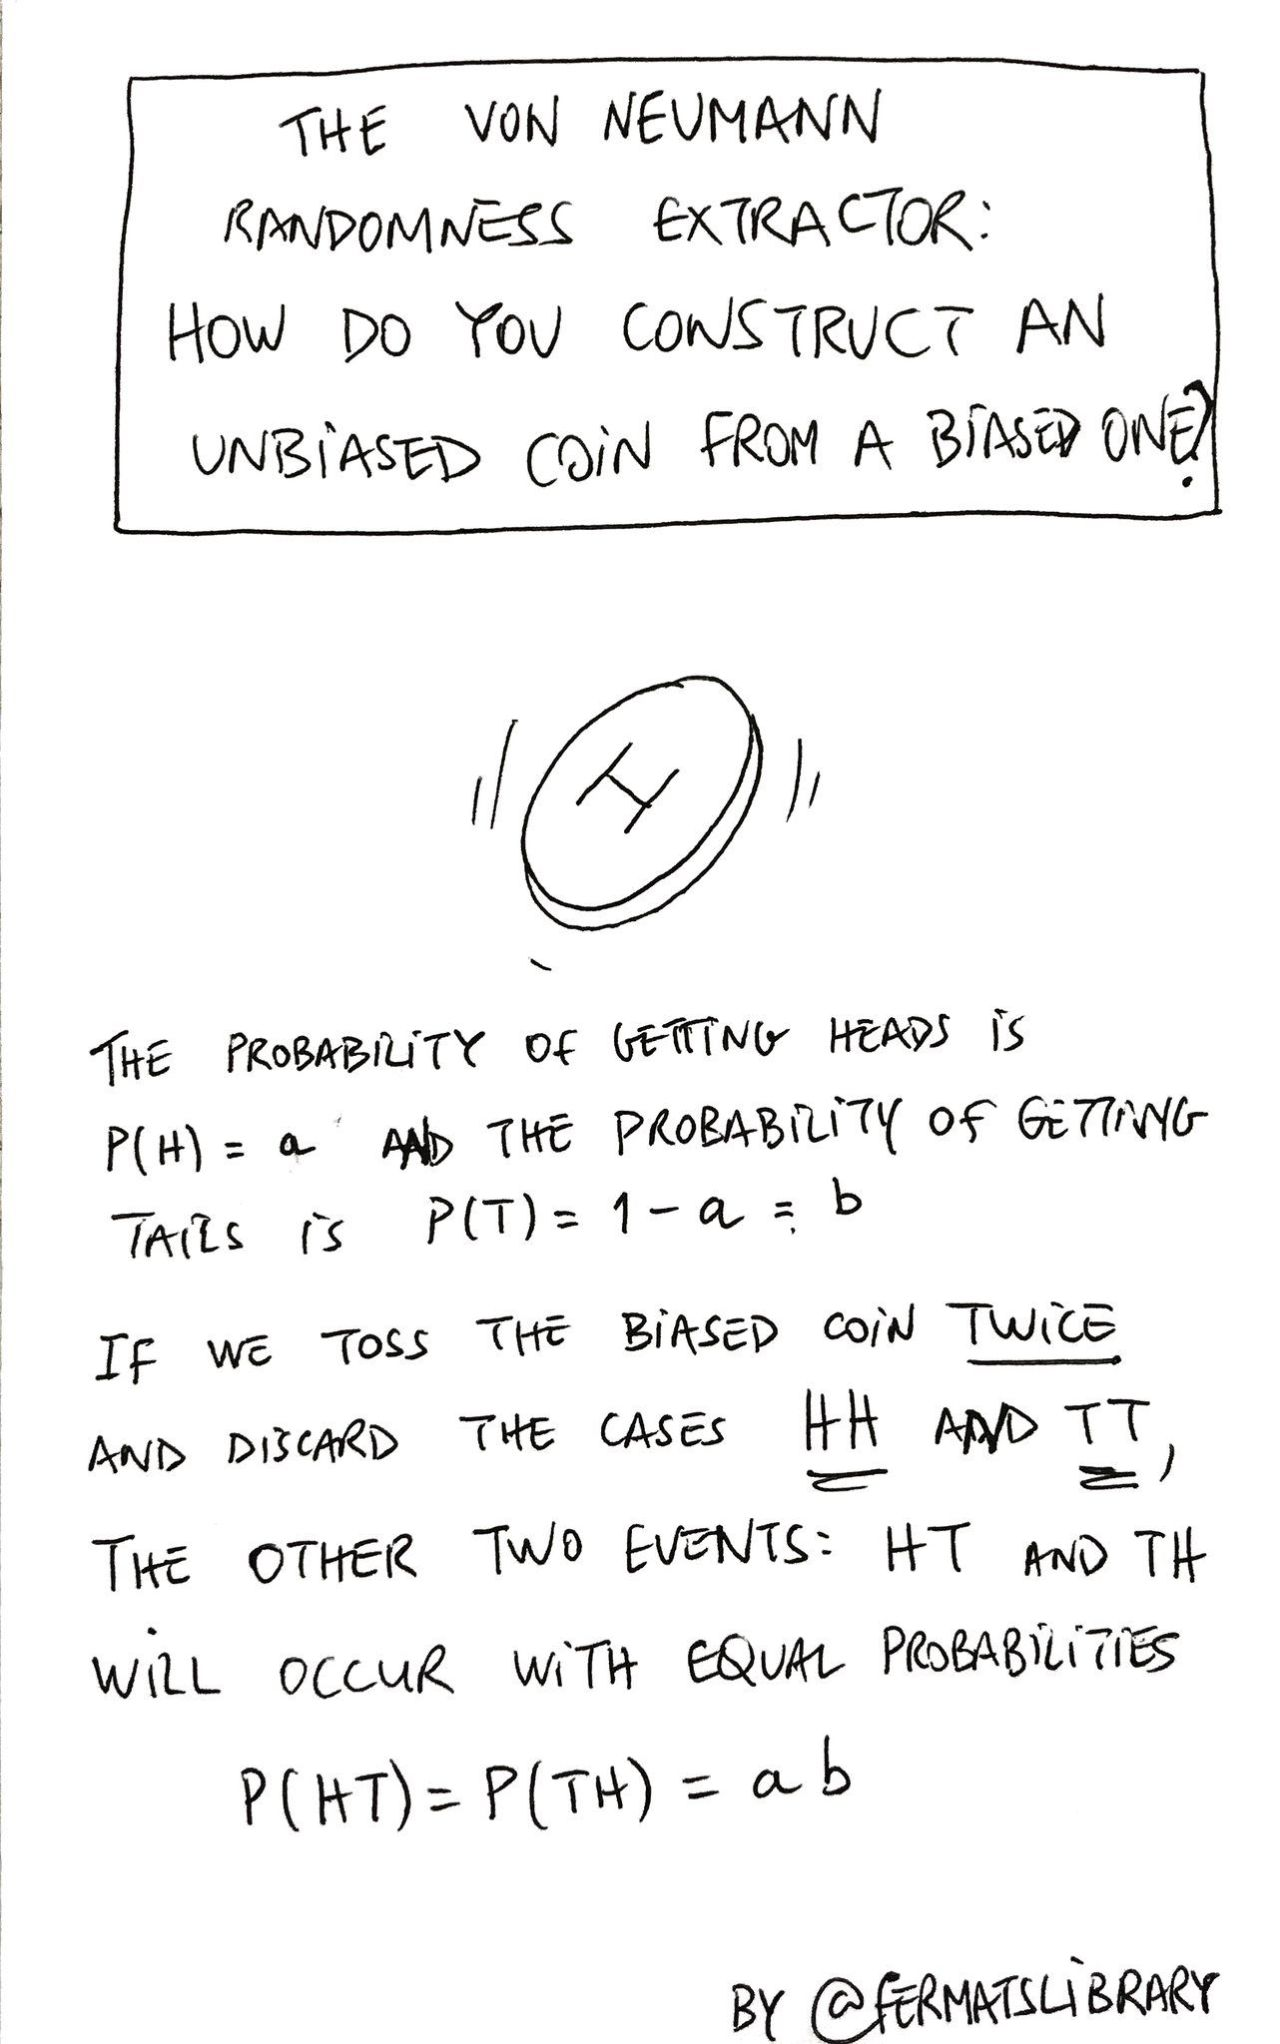 THE VON NEUMANN
RANDOMNESS EXTRACTOR:
HOW DO YOU CONSTRUCT AN
UNBIASED COIN FROM A BIASED ONE?
H
THE PROBABILITY OF GETTING HEADS IS
P(H) = a AND THE PROBABILITY OF GETTING
TAILS IS P(T) = 1 - a = b
IF WE TOSS THE BIASED COIN TWICE
AND DISCARD THE CASES HH AND TT,
THE OTHER TWO EVENTS: HT AND TH
WILL OCCUR WITH EQUAL PROBABILITIES
P(HT) = P(TH) = a b
BY @FERMATSLIBRARY